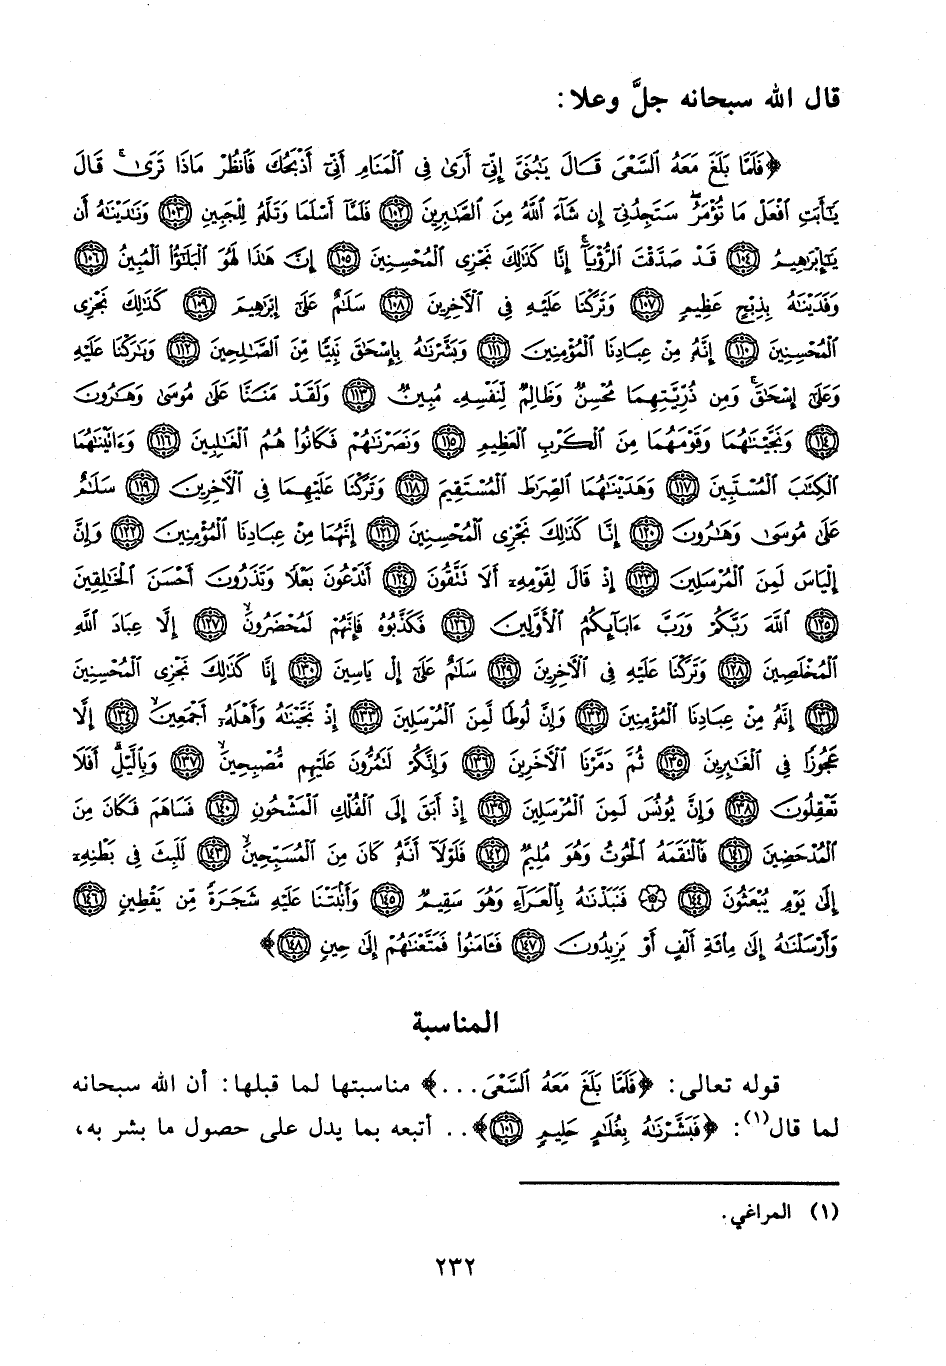 قال الله سبحانه جلَّ وعلا:
﴿فَلَمَّا بَلَغَ مَعَهُ السَّعْىَ قَالَ يَٰبُنَىَّ إِنِّىٓ أَرَىٰ فِى ٱلْمَنَامِ أَنِّىٓ أَذْبَحُكَ فَٱنظُرْ مَاذَا تَرَىٰ ۚ قَالَ
يَٰٓأَبَتِ ٱفْعَلْ مَا تُؤْمَرُ ۖ سَتَجِدُنِىٓ إِن شَآءَ ٱللَّهُ مِنَ ٱلصَّٰبِرِينَ ﴿١٠٢﴾ فَلَمَّآ أَسْلَمَا وَتَلَّهُۥ لِلْجَبِينِ ﴿١٠٣﴾ وَنَٰدَيْنَٰهُ أَن
يَٰٓإِبْرَٰهِيمُ ﴿١٠٤﴾ قَدْ صَدَّقْتَ ٱلرُّءْيَآ ۚ إِنَّا كَذَٰلِكَ نَجْزِى ٱلْمُحْسِنِينَ ﴿١٠٥﴾ إِنَّ هَٰذَا لَهُوَ ٱلْبَلَٰٓؤُا۟ ٱلْمُبِينُ ﴿١٠٦﴾
وَفَدَيْنَٰهُ بِذِبْحٍ عَظِيمٍ ﴿١٠٧﴾ وَتَرَكْنَا عَلَيْهِ فِى ٱلْءَاخِرِينَ ﴿١٠٨﴾ سَلَٰمٌ عَلَىٰٓ إِبْرَٰهِيمَ ﴿١٠٩﴾ كَذَٰلِكَ نَجْزِى
ٱلْمُحْسِنِينَ ﴿١١٠﴾ إِنَّهُۥ مِنْ عِبَادِنَا ٱلْمُؤْمِنِينَ ﴿١١١﴾ وَبَشَّرْنَٰهُ بِإِسْحَٰقَ نَبِيًّا مِّنَ ٱلصَّٰلِحِينَ ﴿١١٢﴾ وَبَٰرَكْنَا عَلَيْهِ
وَعَلَىٰٓ إِسْحَٰقَ ۚ وَمِن ذُرِّيَّتِهِمَا مُحْسِنٌ وَظَالِمٌ لِّنَفْسِهِۦ مُبِينٌ ﴿١١٣﴾ وَلَقَدْ مَنَنَّا عَلَىٰ مُوسَىٰ وَهَٰرُونَ
﴿١١٤﴾ وَنَجَّيْنَٰهُمَا وَقَوْمَهُمَا مِنَ ٱلْكَرْبِ ٱلْعَظِيمِ ﴿١١٥﴾ وَنَصَرْنَٰهُمْ فَكَانُوا۟ هُمُ ٱلْغَٰلِبِينَ ﴿١١٦﴾ وَءَاتَيْنَٰهُمَا
ٱلْكِتَٰبَ ٱلْمُسْتَبِينَ ﴿١١٧﴾ وَهَدَيْنَٰهُمَا ٱلصِّرَٰطَ ٱلْمُسْتَقِيمَ ﴿١١٨﴾ وَتَرَكْنَا عَلَيْهِمَا فِى ٱلْءَاخِرِينَ ﴿١١٩﴾ سَلَٰمٌ
عَلَىٰ مُوسَىٰ وَهَٰرُونَ ﴿١٢٠﴾ إِنَّا كَذَٰلِكَ نَجْزِى ٱلْمُحْسِنِينَ ﴿١٢١﴾ إِنَّهُمَا مِنْ عِبَادِنَا ٱلْمُؤْمِنِينَ ﴿١٢٢﴾ وَإِنَّ
إِلْيَاسَ لَمِنَ ٱلْمُرْسَلِينَ ﴿١٢٣﴾ إِذْ قَالَ لِقَوْمِهِۦٓ أَلَا تَتَّقُونَ ﴿١٢٤﴾ أَتَدْعُونَ بَعْلًا وَتَذَرُونَ أَحْسَنَ ٱلْخَٰلِقِينَ
﴿١٢٥﴾ ٱللَّهَ رَبَّكُمْ وَرَبَّ ءَابَآئِكُمُ ٱلْأَوَّلِينَ ﴿١٢٦﴾ فَكَذَّبُوهُ فَإِنَّهُمْ لَمُحْضَرُونَ ﴿١٢٧﴾ إِلَّا عِبَادَ ٱللَّهِ
ٱلْمُخْلَصِينَ ﴿١٢٨﴾ وَتَرَكْنَا عَلَيْهِ فِى ٱلْءَاخِرِينَ ﴿١٢٩﴾ سَلَٰمٌ عَلَىٰٓ إِلْ يَاسِينَ ﴿١٣٠﴾ إِنَّا كَذَٰلِكَ نَجْزِى ٱلْمُحْسِنِينَ
﴿١٣١﴾ إِنَّهُۥ مِنْ عِبَادِنَا ٱلْمُؤْمِنِينَ ﴿١٣٢﴾ وَإِنَّ لُوطًا لَّمِنَ ٱلْمُرْسَلِينَ ﴿١٣٣﴾ إِذْ نَجَّيْنَٰهُ وَأَهْلَهُۥٓ أَجْمَعِينَ ﴿١٣٤﴾ إِلَّا
عَجُوزًا فِى ٱلْغَٰبِرِينَ ﴿١٣٥﴾ ثُمَّ دَمَّرْنَا ٱلْءَاخَرِينَ ﴿١٣٦﴾ وَإِنَّكُمْ لَتَمُرُّونَ عَلَيْهِم مُّصْبِحِينَ ﴿١٣٧﴾ وَبِٱلَّيْلِ ۗ أَفَلَا
تَعْقِلُونَ ﴿١٣٨﴾ وَإِنَّ يُونُسَ لَمِنَ ٱلْمُرْسَلِينَ ﴿١٣٩﴾ إِذْ أَبَقَ إِلَى ٱلْفُلْكِ ٱلْمَشْحُونِ ﴿١٤٠﴾ فَسَاهَمَ فَكَانَ مِنَ
ٱلْمُدْحَضِينَ ﴿١٤١﴾ فَٱلْتَقَمَهُ ٱلْحُوتُ وَهُوَ مُلِيمٌ ﴿١٤٢﴾ فَلَوْلَآ أَنَّهُۥ كَانَ مِنَ ٱلْمُسَبِّحِينَ ﴿١٤٣﴾ لَلَبِثَ فِى بَطْنِهِۦٓ
إِلَىٰ يَوْمِ يُبْعَثُونَ ﴿١٤٤﴾ ۞ فَنَبَذْنَٰهُ بِٱلْعَرَآءِ وَهُوَ سَقِيمٌ ﴿١٤٥﴾ وَأَنۢبَتْنَا عَلَيْهِ شَجَرَةً مِّن يَقْطِينٍ ﴿١٤٦﴾
وَأَرْسَلْنَٰهُ إِلَىٰ مِا۟ئَةِ أَلْفٍ أَوْ يَزِيدُونَ ﴿١٤٧﴾ فَـَٔامَنُوا۟ فَمَتَّعْنَٰهُمْ إِلَىٰ حِينٍ ﴿١٤٨﴾﴾
المناسبة
قوله تعالى: ﴿فَلَمَّا بَلَغَ مَعَهُ ٱلسَّعْىَ...﴾ مناسبتها لما قبلها: أن الله سبحانه
لما قال(١): ﴿فَبَشَّرْنَٰهُ بِغُلَٰمٍ حَلِيمٍ ﴿١٠١﴾﴾.. أتبعه بما يدل على حصول ما بشر به،
(١) المراغي.
٢٣٢